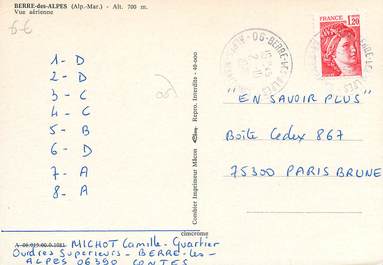 BERRE-des-ALPES (Alp.-Mar.) - Alt. 700 m.
Vue aérienne
6-6
1- D
2- D
3- C
4- C
5- B
6- D
7- A
8- A
Combier Imprimeur Mâcon
Repro. Interdite - 40-000
cimcrome
06 - BERRE-LES-ALPES
1,20
"EN SAVOIR PLUS"
Boîte Cedex 867
75300 PARIS BRUNE
MICHOT Camille - Quartier
Oudres Superieurs - BERRE-les-
ALPES 06390 CONTES